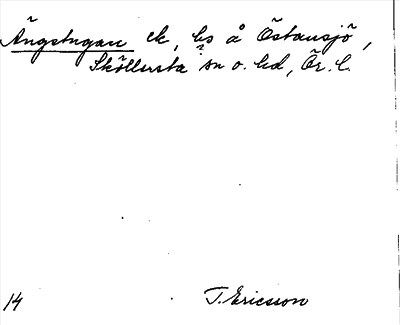 Ängstugan ek, bs å Östansjö,
Sköllersta sn o. hd, Ör. l.
14
T. Ericsson